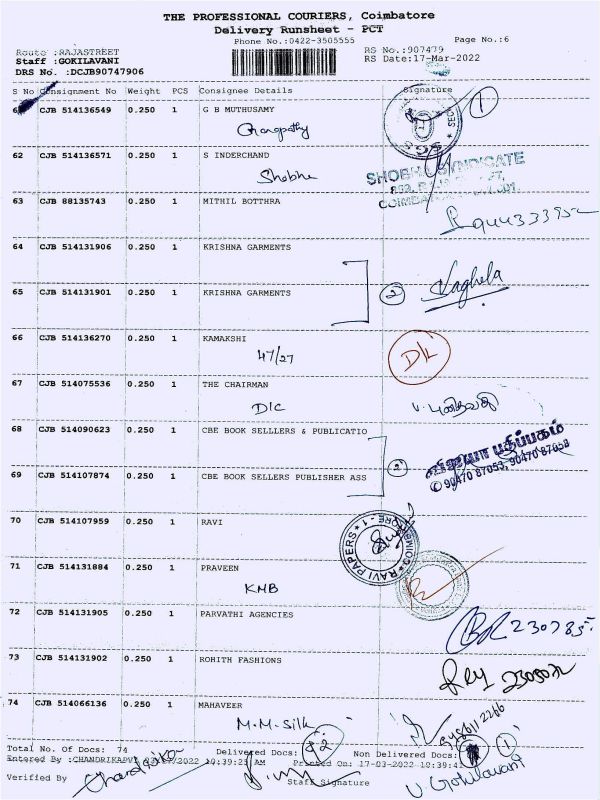 THE PROFESSIONAL COURIERS, Coimbatore
Delivery Runsheet - PCT
Phone No.:0422-3505555 Page No.:6
Route :RAJASTREET RS No.:907479
Staff :GOKILAVANI RS Date:17-Mar-2022
DRS No. :DCJB90747906
S No Consignment No Weight PCS Consignee Details Signature
CJB 514136549 0.250 1 G B MUTHUSAMY
SGS
1
62 CJB 514136571 0.250 1 S INDERCHAND
Shobha
SYNDICATE
63 CJB 88135743 0.250 1 MITHIL BOTTHRA
64 CJB 514131906 0.250 1 KRISHNA GARMENTS
65 CJB 514131901 0.250 1 KRISHNA GARMENTS
2 Vaghela
66 CJB 514136270 0.250 1 KAMAKSHI
47/27
D/L
67 CJB 514075536 0.250 1 THE CHAIRMAN
DIC
68 CJB 514090623 0.250 1 CBE BOOK SELLLERS & PUBLICATIO
2
விஜயா பதிப்பகம்
90470 87053, 90470 87058
69 CJB 514107874 0.250 1 CBE BOOK SELLERS PUBLISHER ASS
70 CJB 514107959 0.250 1 RAVI
RAVI PAPERS
71 CJB 514131884 0.250 1 PRAVEEN
KMB
72 CJB 514131905 0.250 1 PARVATHI AGENCIES
73 CJB 514131902 0.250 1 ROHITH FASHIONS
74 CJB 514066136 0.250 1 MAHAVEER
M.M-Silk
Total No. Of Docs: 74 Delivered Docs: Non Delivered Docs: 1
Entered By :CHANDRIKAPVT 2022 10:39:25 AM Printed On: 17-03-2022 10:39:4
Verified By Chandrika Staff Signature V Gokilavani